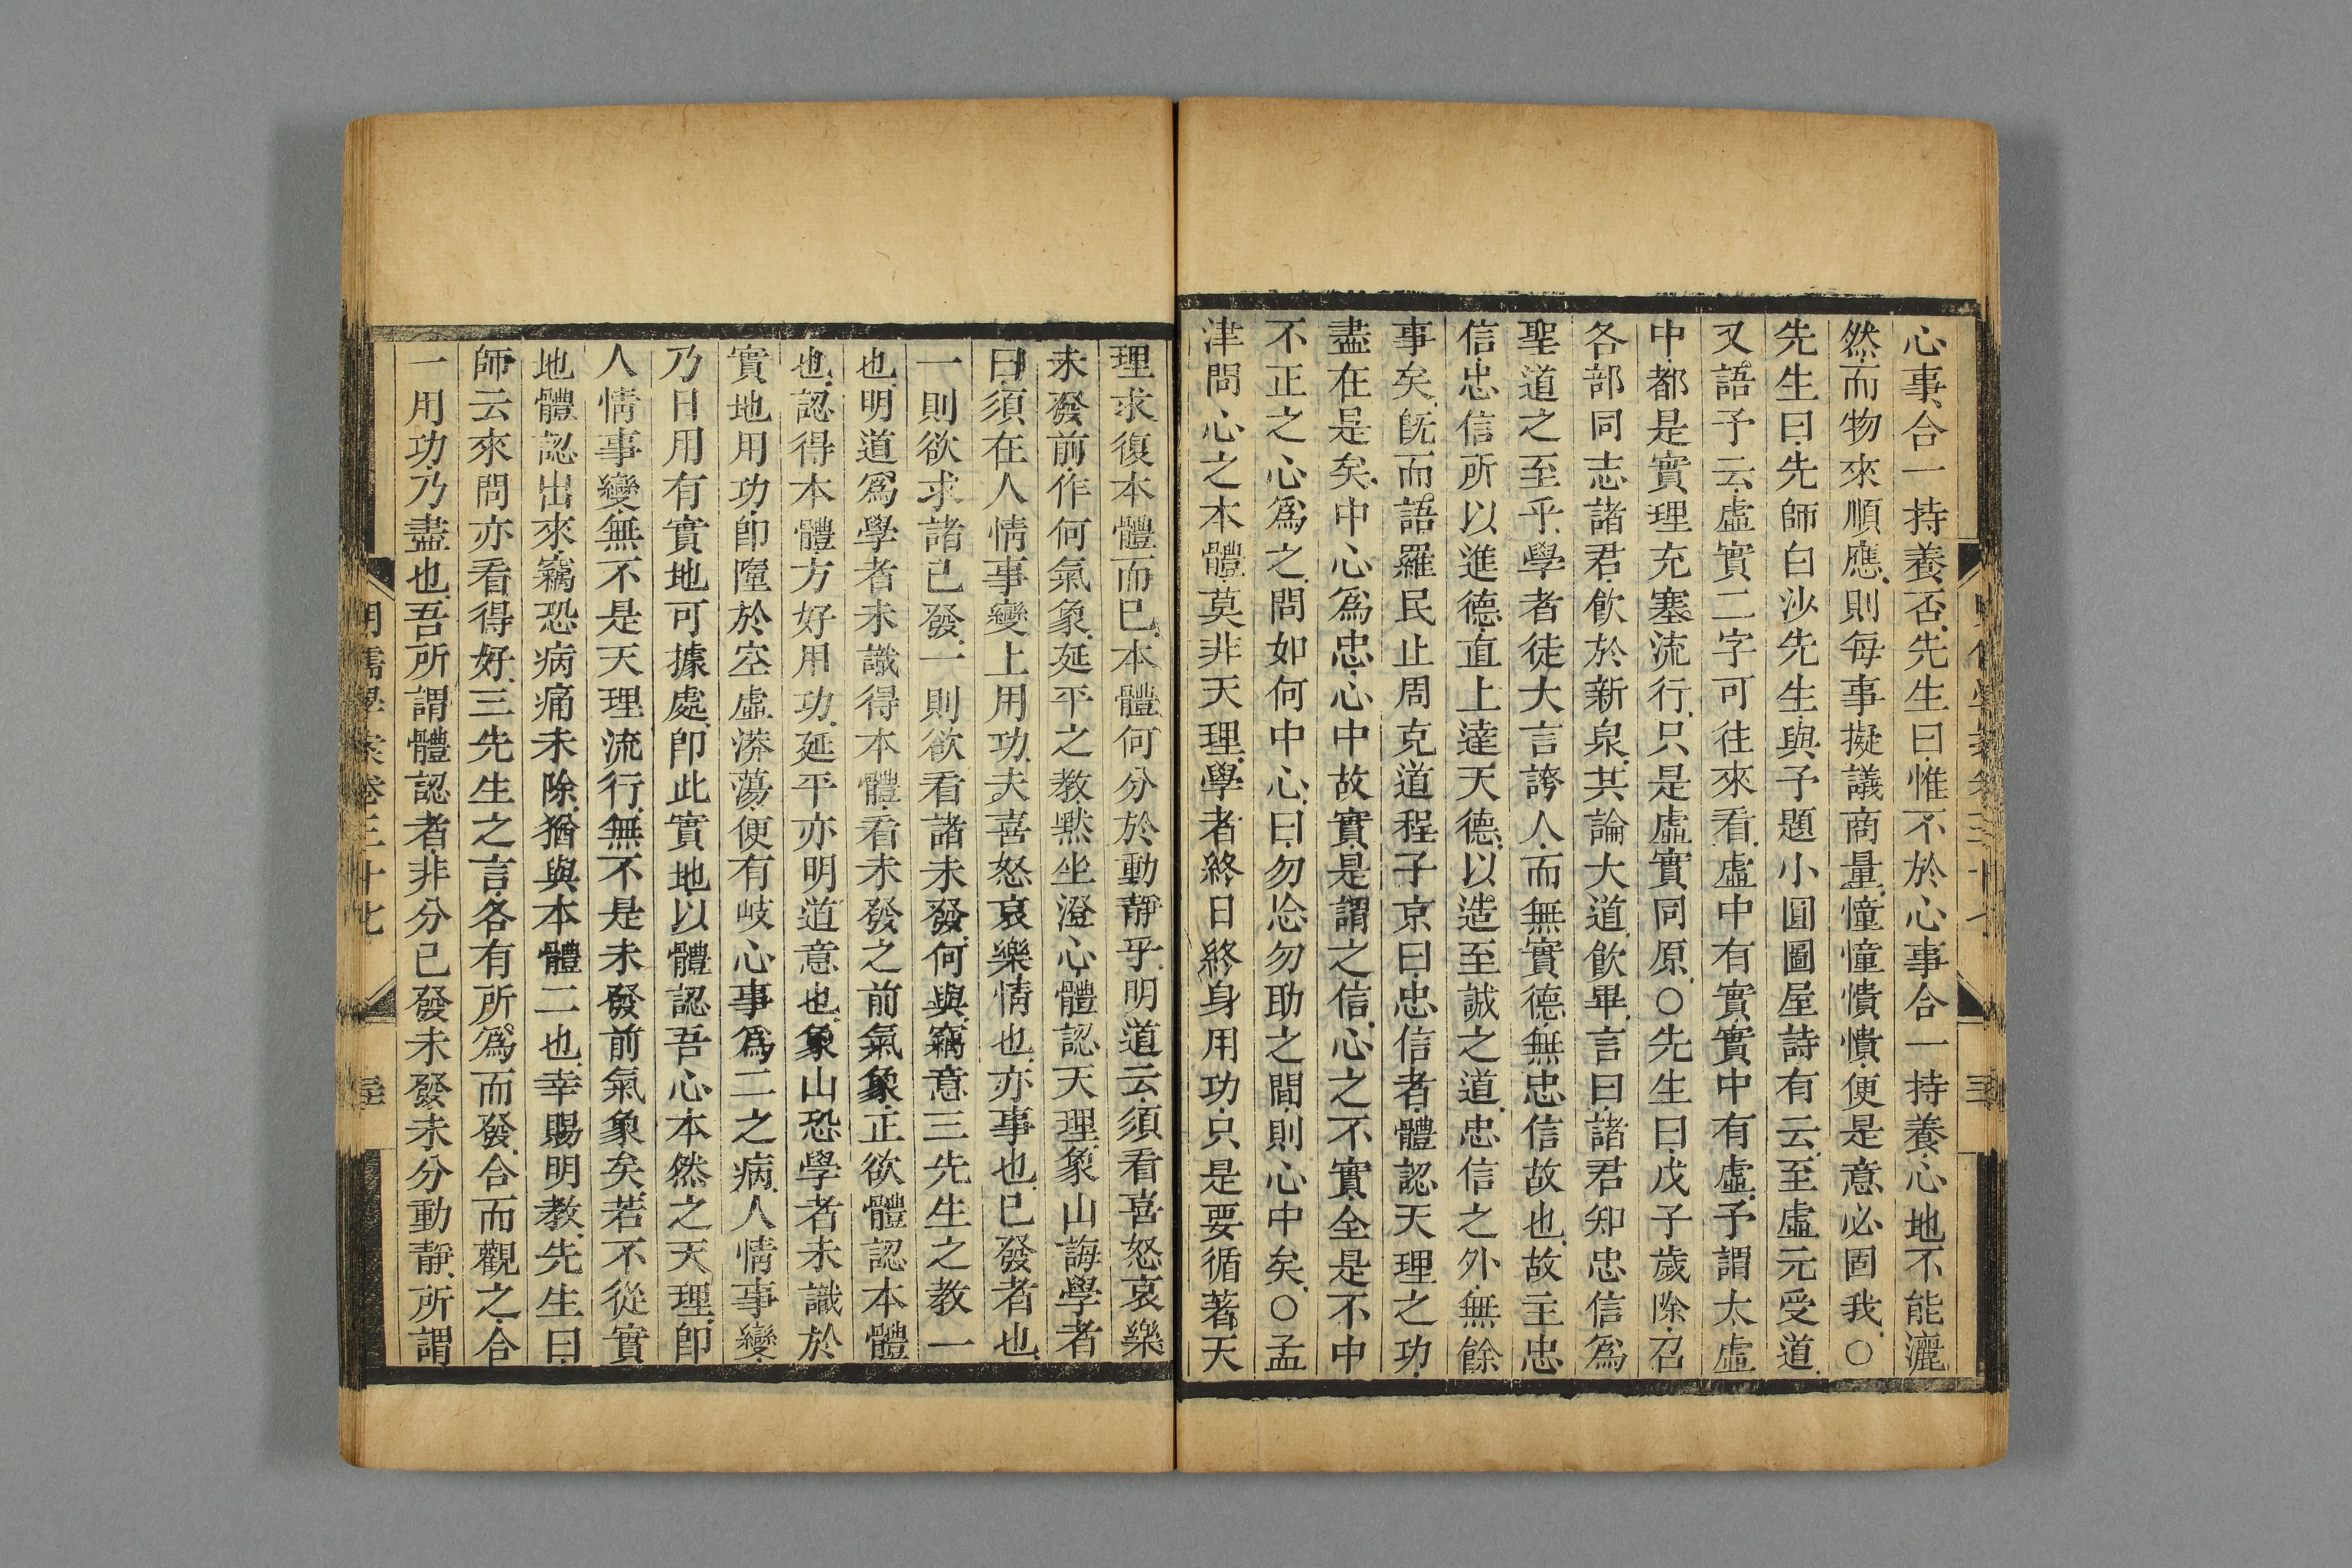 心事合一持養否先生曰惟不於心事合一持養心地不能灑
然而物來順應則每事擬議商量憧憧憒憒便是意必固我○
先生曰先師白沙先生與予題小圓圖屋詩有云至虛元受道
又語予云虛實二字可往來看虛中有實實中有虛予謂太虛
中都是實理充塞流行只是虛實同原○先生曰戊子歲除召
各部同志諸君飲於新泉共論大道飲畢言曰諸君知忠信爲
聖道之至乎學者徒大言誇人而無實德無忠信故也故主忠
信忠信所以進德直上達天德以造至誠之道忠信之外無餘
事矣旣而語羅民止周克道程子京曰忠信者體認天理之功
盡在是矣中心爲忠心中故實是謂之信心之不實全是不中
不正之心爲之問如何中心曰勿忘勿助之間則心中矣○孟
津問心之本體莫非天理學者終日終身用功只是要循著天
理求復本體而已本體何分於動靜乎明道云須看喜怒哀樂
未發前作何氣象延平之教默坐澄心體認天理象山誨學者
曰須在人情事變上用功夫喜怒哀樂情也亦事也已發者也
一則欲求諸已發一則欲看諸未發何與竊意三先生之教一
也明道爲學者未識得本體看未發之前氣象正欲體認本體
也認得本體方好用功延平亦明道意也象山恐學者未識於
實地用功即墮於空虛漭蕩便有岐心事爲二之病人情事變
乃日用有實地可據處即此實地以體認吾心本然之天理即
人情事變無不是天理流行無不是未發前氣象矣若不從實
地體認出來竊恐病痛未除猶與本體二也幸賜明教先生曰
師云來問亦看得好三先生之言各有所爲而發合而觀之合
一用功乃盡也吾所謂體認者非分已發未發未分動靜所謂
明儒學案卷三十七